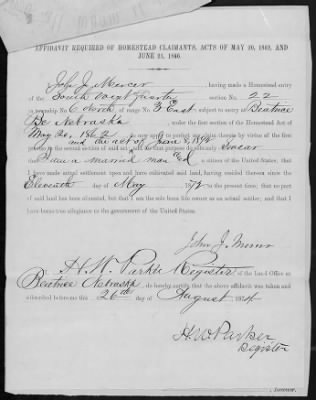 AFFIDAVIT REQUIRED OF HOMESTEAD CLAIMANTS, ACTS OF MAY 20, 1862, AND
JUNE 21, 1866.
I, John J. Mercer, having made a Homestead entry
of the South West quarter section No. 22
in township No. 6 North, of range No. 3 East subject to entry at Beatrice
Nebraska, under the first section of the Homestead Act of
May 20, 1862, do now apply to perfect my claim thereto by virtue of the first
and the act of June 3, 1874
section of said act; and for that purpose do solemnly Swear
that I am a married man and a citizen of the United States; that
I have made actual settlement upon and have cultivated said land, having resided thereon since the
Eleventh day of May 1872 to the present time; that no part
of said land has been alienated, but that I am the sole bona fide owner as an actual settler; and that I
have borne true allegiance to the government of the United States.
John J. Mercer
I, H. W. Parker Register of the Land Office at
Beatrice Nebraska, do hereby certify that the above affidavit was taken and
subscribed before me this 26th day of August 1874
H. W. Parker
Register